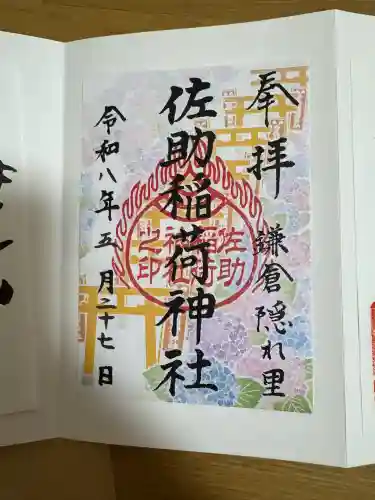 奉拝
鎌倉隠れ里
佐助稲荷神社
令和八年五月二十七日
佐助
稲荷
神社
之印